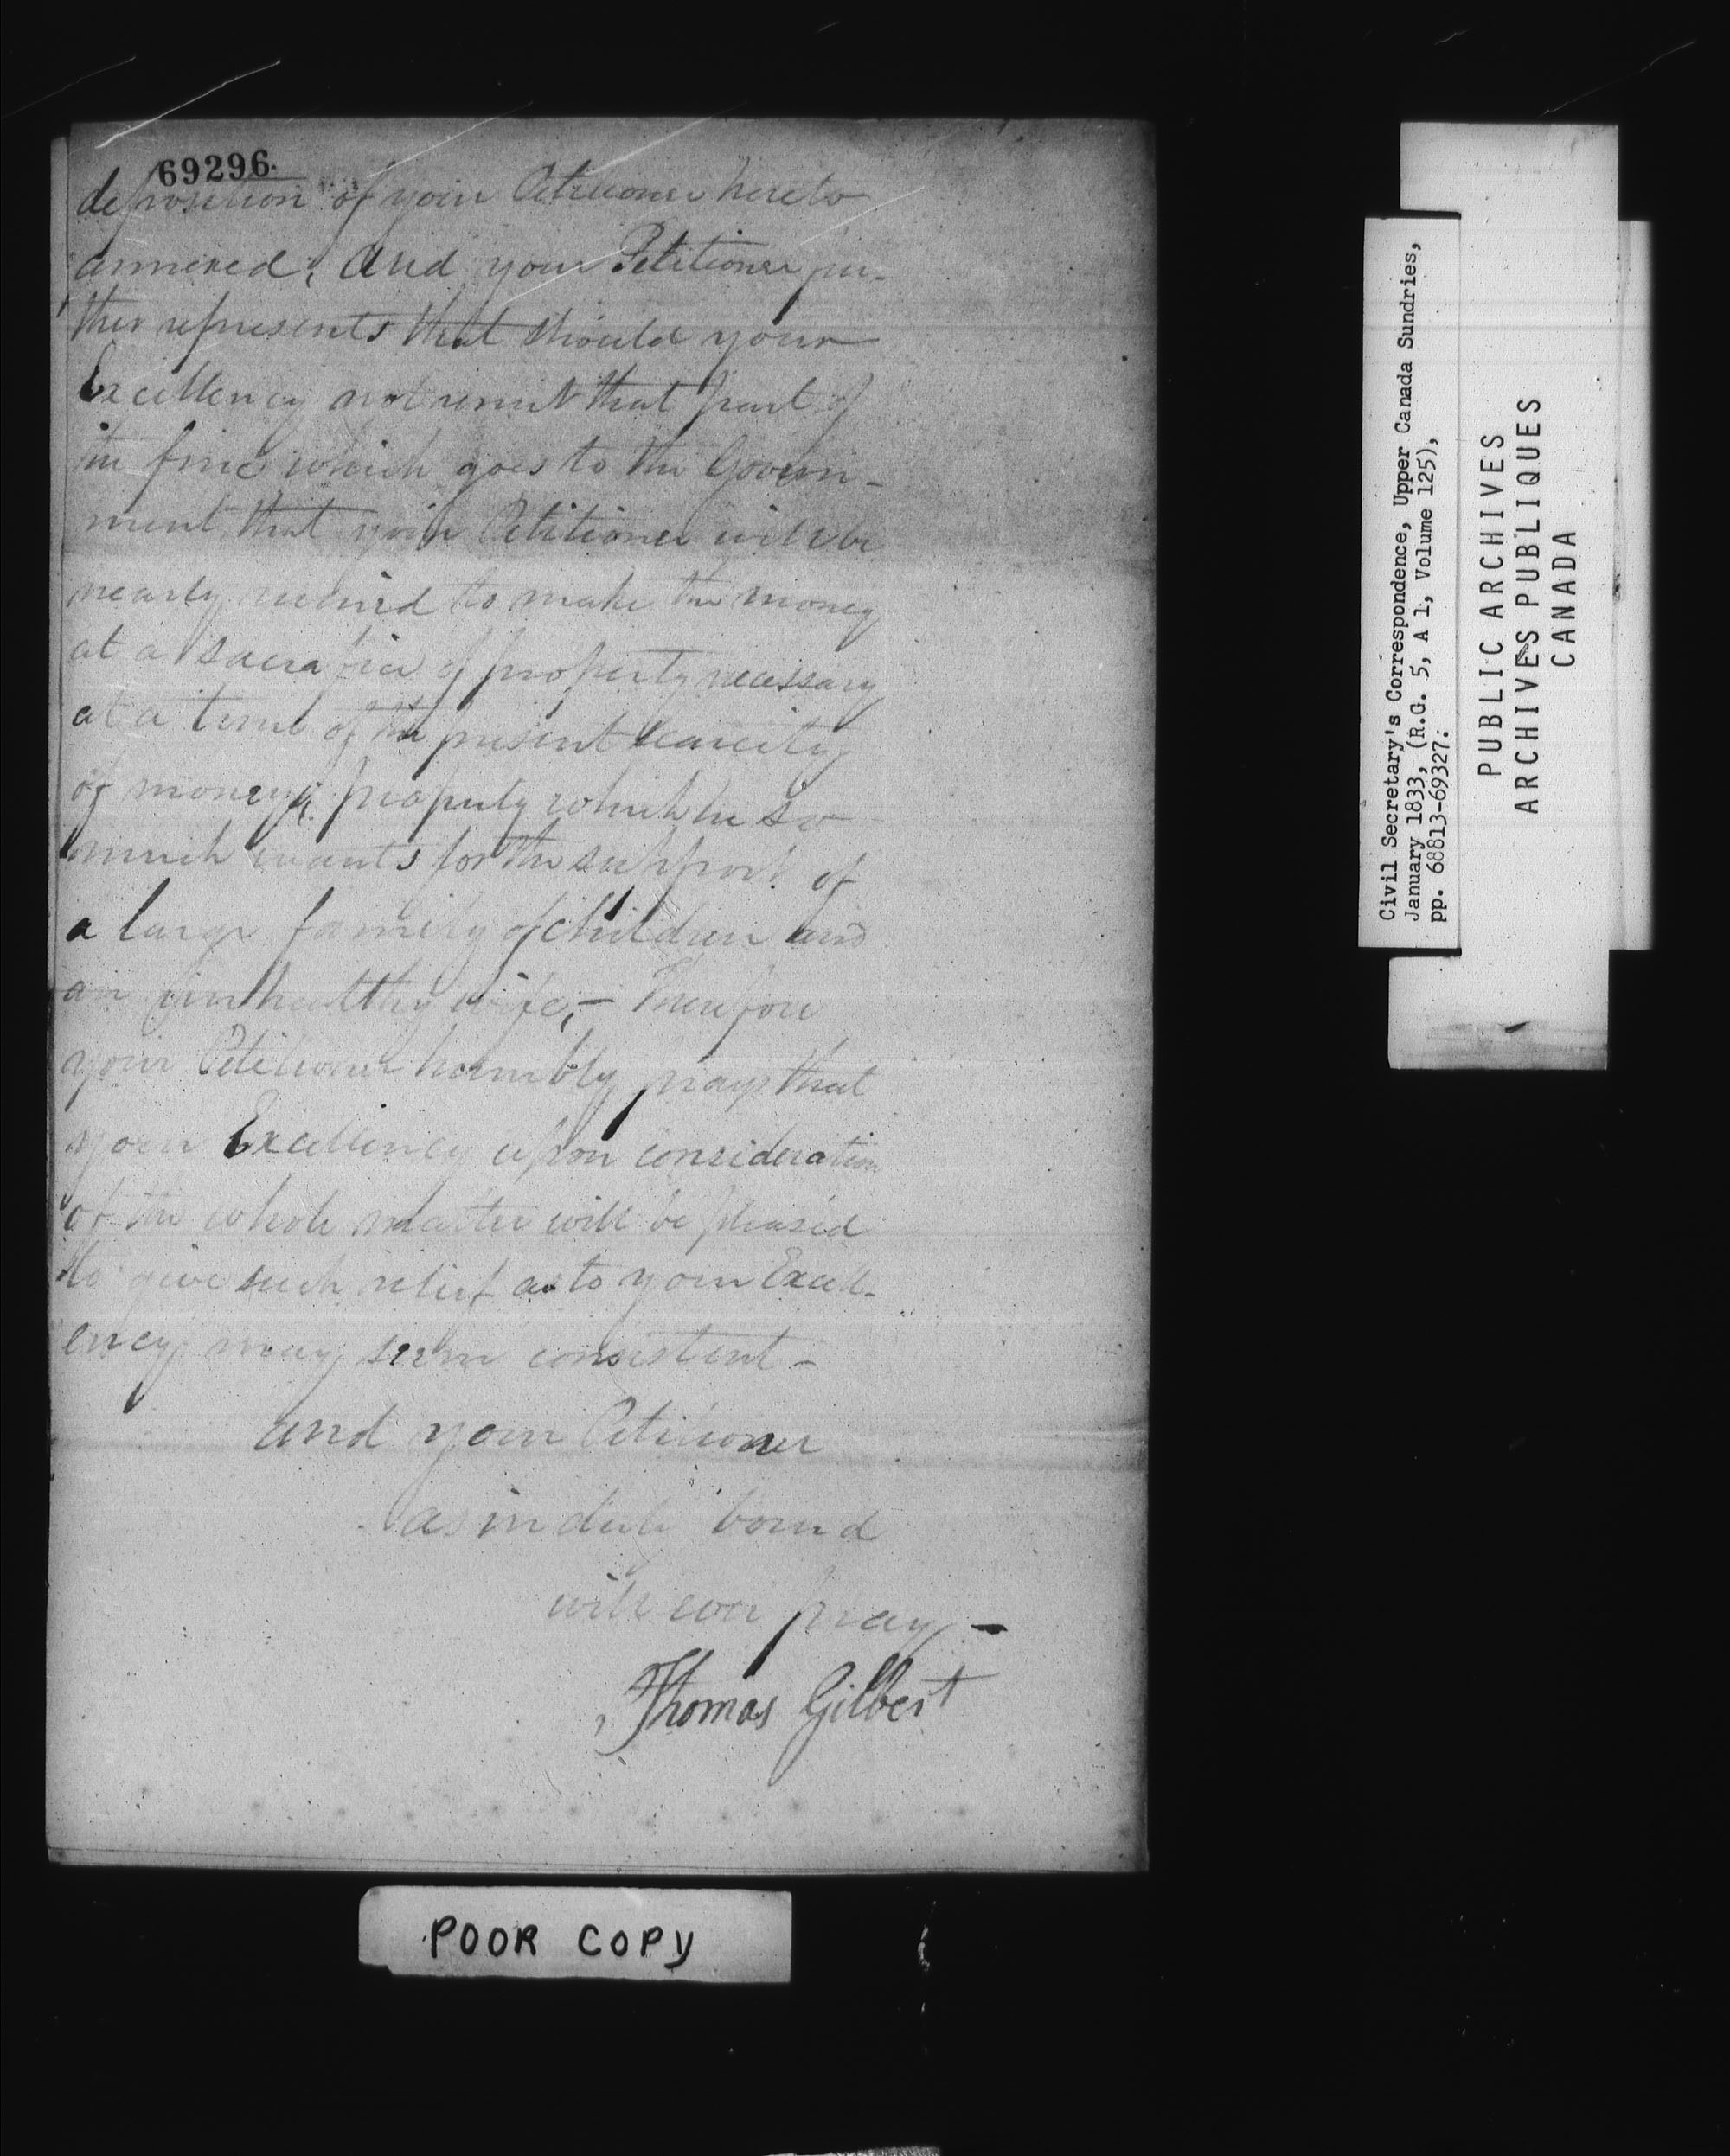 69296.
deposition of your Petitioner hereto
annexed; And your Petitioner fur-
ther represents that should your
Excellency not remit that part of
the fine which goes to the Govern-
ment that your Petitioner will be
nearly ruined to make the money
at a sacrafice of property necessary
at a time of the present scarcity
of money, property which he so
much wants for the support of
a large family of children and
an unhealthy wife,- Therefore
your Petitioner humbly prays that
your Excellency upon consideration
of the whole matter will be pleased
to give such relief as to your Excell-
ency may seem consistent -
and your Petitioner
as in duty bound
will ever pray -
Thomas Gilbert
POOR COPY
Civil Secretary's Correspondence, Upper Canada Sundries,
January 1833, (R.G. 5, A 1, Volume 125),
pp. 68813-69327.
PUBLIC ARCHIVES
ARCHIVES PUBLIQUES
CANADA